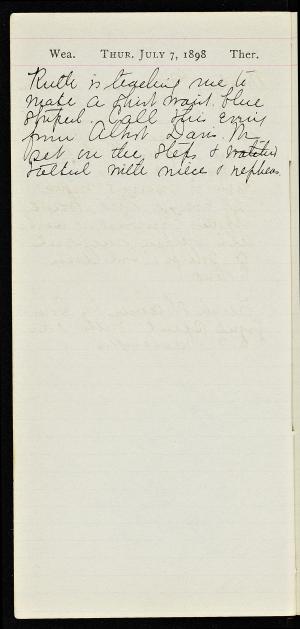 Wea. THUR. JULY 7, 1898 Ther.
Ruth is teaching me to
make a shirt waist. blue
striped. Call this Even'g
from Albert Davis. We
set on the steps & watched
talked with niece & nephew.